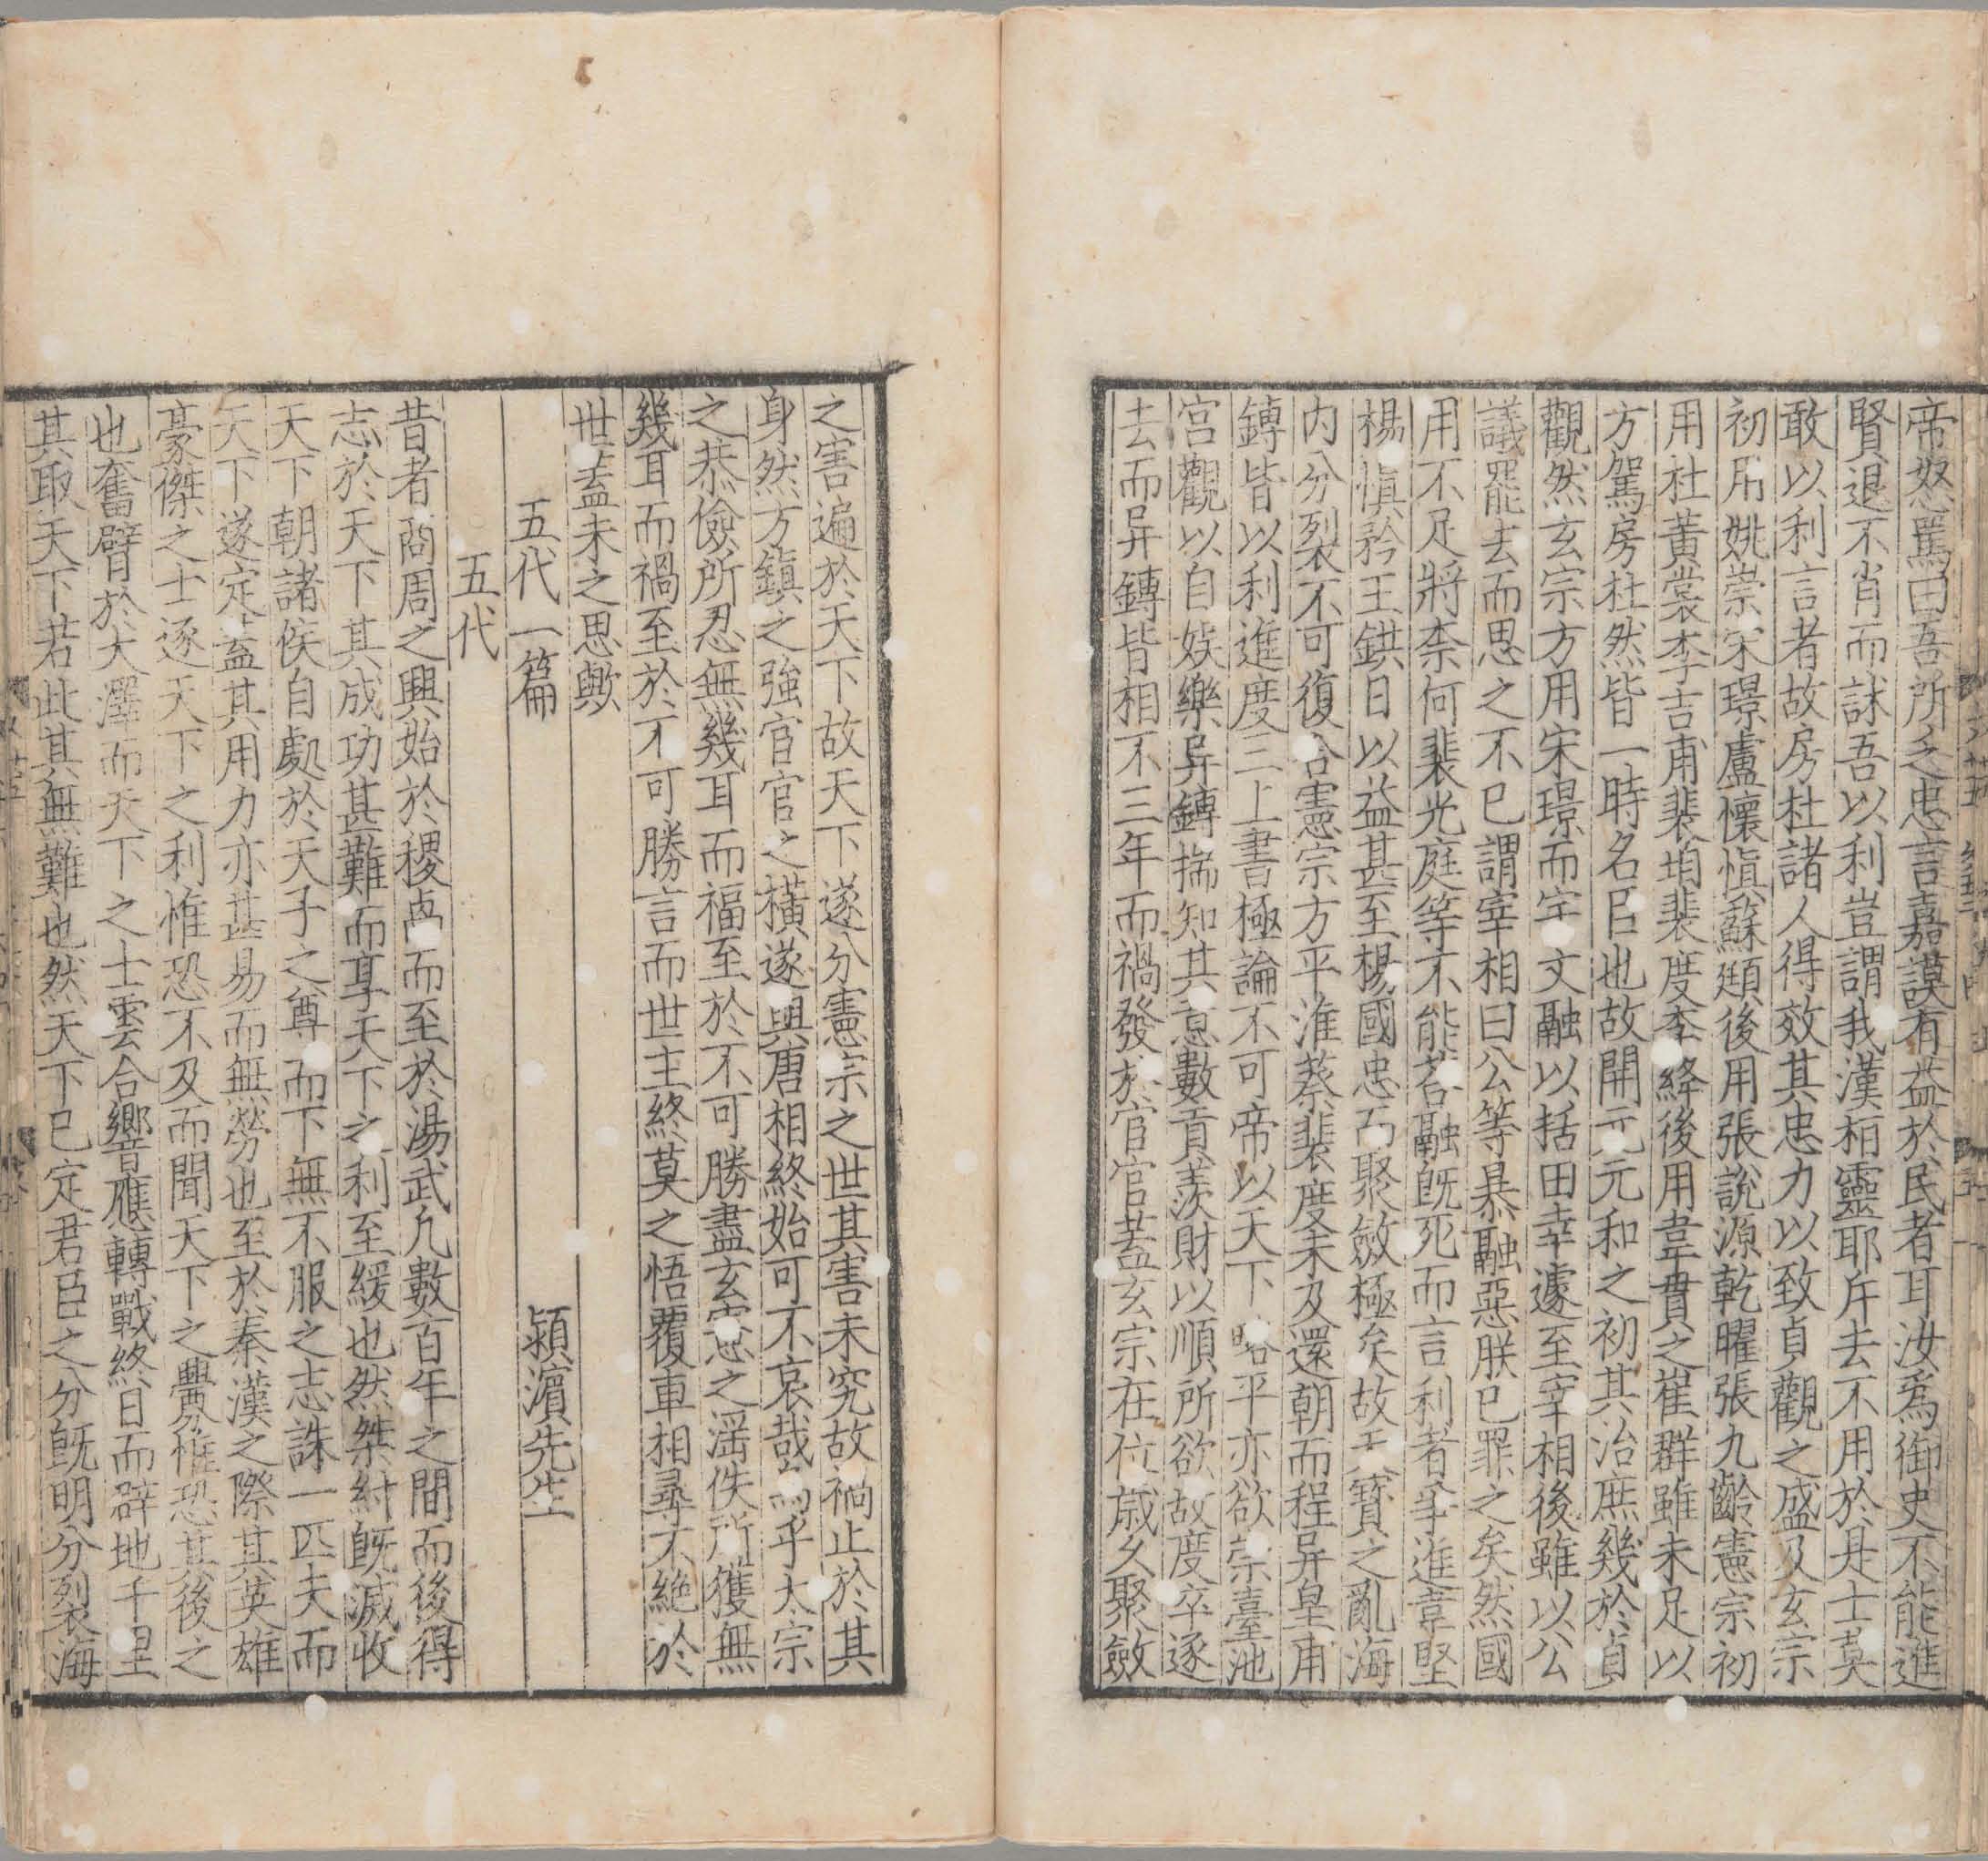 帝怒罵曰吾所乏忠言嘉謨有益於民者耳汝爲御史不能進
賢退不肖而訹吾以利豈謂我漢桓靈耶斥去不用於是士莫
敢以利言者故房杜諸人得效其忠力以致貞觀之盛及玄宗
初用姚崇宋璟盧懷愼蘇頲後用張說源乾曜張九齡憲宗初
用杜黃裳李吉甫裴垍裴度李絳後用韋貫之崔群雖未足以
方駕房杜然皆一時名臣也故開元元和之初其治庶幾於貞
觀然玄宗方用宋璟而宇文融以括田幸遽至宰相後雖以公
議罷去而思之不已謂宰相曰公等暴融惡朕已罪之矣然國
用不足將柰何裴光庭等不能荅融旣死而言利者爭進韋堅
楊愼矜王鉷日以益甚至楊國忠而聚斂極矣故天寶之亂海
内分裂不可復合憲宗方平淮蔡裴度未及還朝而程异皇甫
鎛皆以利進度三上書極論不可帝以天下略平亦欲崇臺池
宮觀以自娛樂异鎛揣知其意數貢羨財以順所欲故度卒逐
去而异鎛皆相不三年而禍發於宦官蓋玄宗在位歲久聚斂
之害遍於天下故天下遂分憲宗之世其害未究故禍止於其
身然方鎮之強宦官之橫遂與唐相終始可不哀哉嗚乎太宗
之恭儉所忍無幾耳而福至於不可勝盡玄憲之滛佚所獲無
幾耳而禍至於不可勝言而世主終莫之悟覆車相尋不絶於
世蓋未之思歟
五代一篇 潁濱先生
五代
昔者商周之興始於稷卨而至於湯武凡數百年之間而後得
志於天下其成功甚難而享天下之利至緩也然桀紂旣滅收
天下朝諸侯自處於天子之尊而下無不服之志誅一匹夫而
天下遂定蓋其用力亦甚易而無勞也至於秦漢之際其英雄
豪傑之士逐天下之利惟恐不及而聞天下之釁惟恐其後之
也奮臂於大澤而天下之士雲合響應轉戰終日而辟地千里
其取天下若此其無難也然天下已定君臣之分旣明分裂海